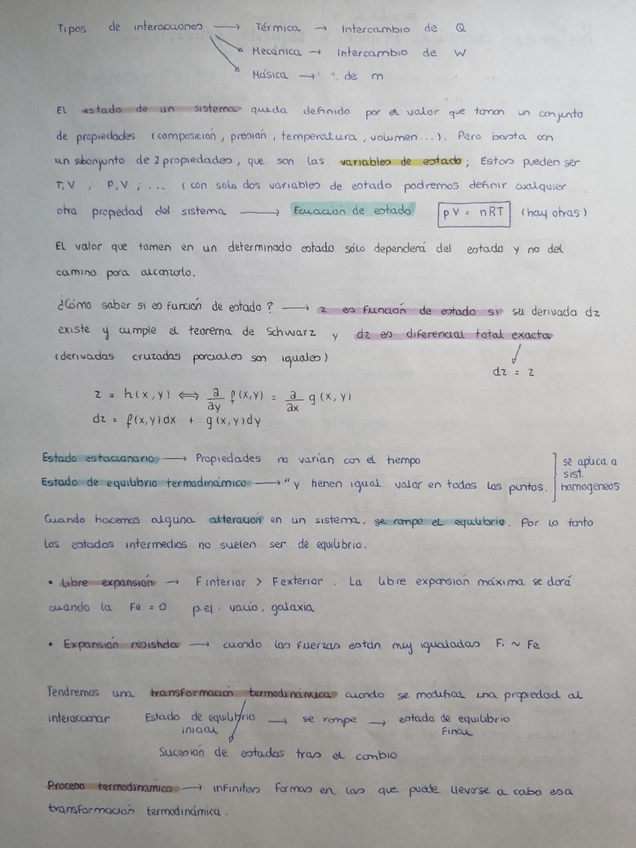 Tipos de interacciones → Térmica → Intercambio de Q
Mecánica → Intercambio de W
Másica → " de m
El estado de un sistema queda definido por el valor que toman un conjunto
de propiedades (composición, presión, temperatura, volumen...). Pero basta con
un subconjunto de 2 propiedades, que son las variables de estado; Estas pueden ser
T,V ; P,V ; ... (con solo dos variables de estado podremos definir cualquier
otra propiedad del sistema → Ecuación de estado pV = nRT (hay otras)
El valor que tomen en un determinado estado sólo dependerá del estado y no del
camino para alcanzarlo.
¿Cómo saber si es función de estado? → z es función de estado si su derivada dz
existe y cumple el teorema de Schwarz y dz es diferencial total exacta
(derivadas cruzadas parciales son iguales)
dz = z
z = h(x,y) ⟺ ∂/∂y f(x,y) = ∂/∂x g(x,y)
dz = f(x,y)dx + g(x,y)dy
Estado estacionario → Propiedades no varían con el tiempo
Estado de equilibrio termodinámico → " y tienen igual valor en todos los puntos.
se aplica a
sist.
homogéneos
Cuando hacemos alguna alteración en un sistema, se rompe el equilibrio. Por lo tanto
los estados intermedios no suelen ser de equilibrio.
• Libre expansión → Finterior > Fexterior. La libre expansión máxima se dará
cuando la Fe = 0 p.ej: vacío, galaxia
• Expansión resistida → cuando las fuerzas están muy igualadas Fi ~ Fe
Tendremos una transformación termodinámica cuando se modifica una propiedad al
interaccionar. Estado de equilibrio inicial → se rompe → estado de equilibrio final
Sucesión de estados tras el cambio
Proceso termodinámico → infinitas formas en las que puede llevarse a cabo esa
transformación termodinámica.